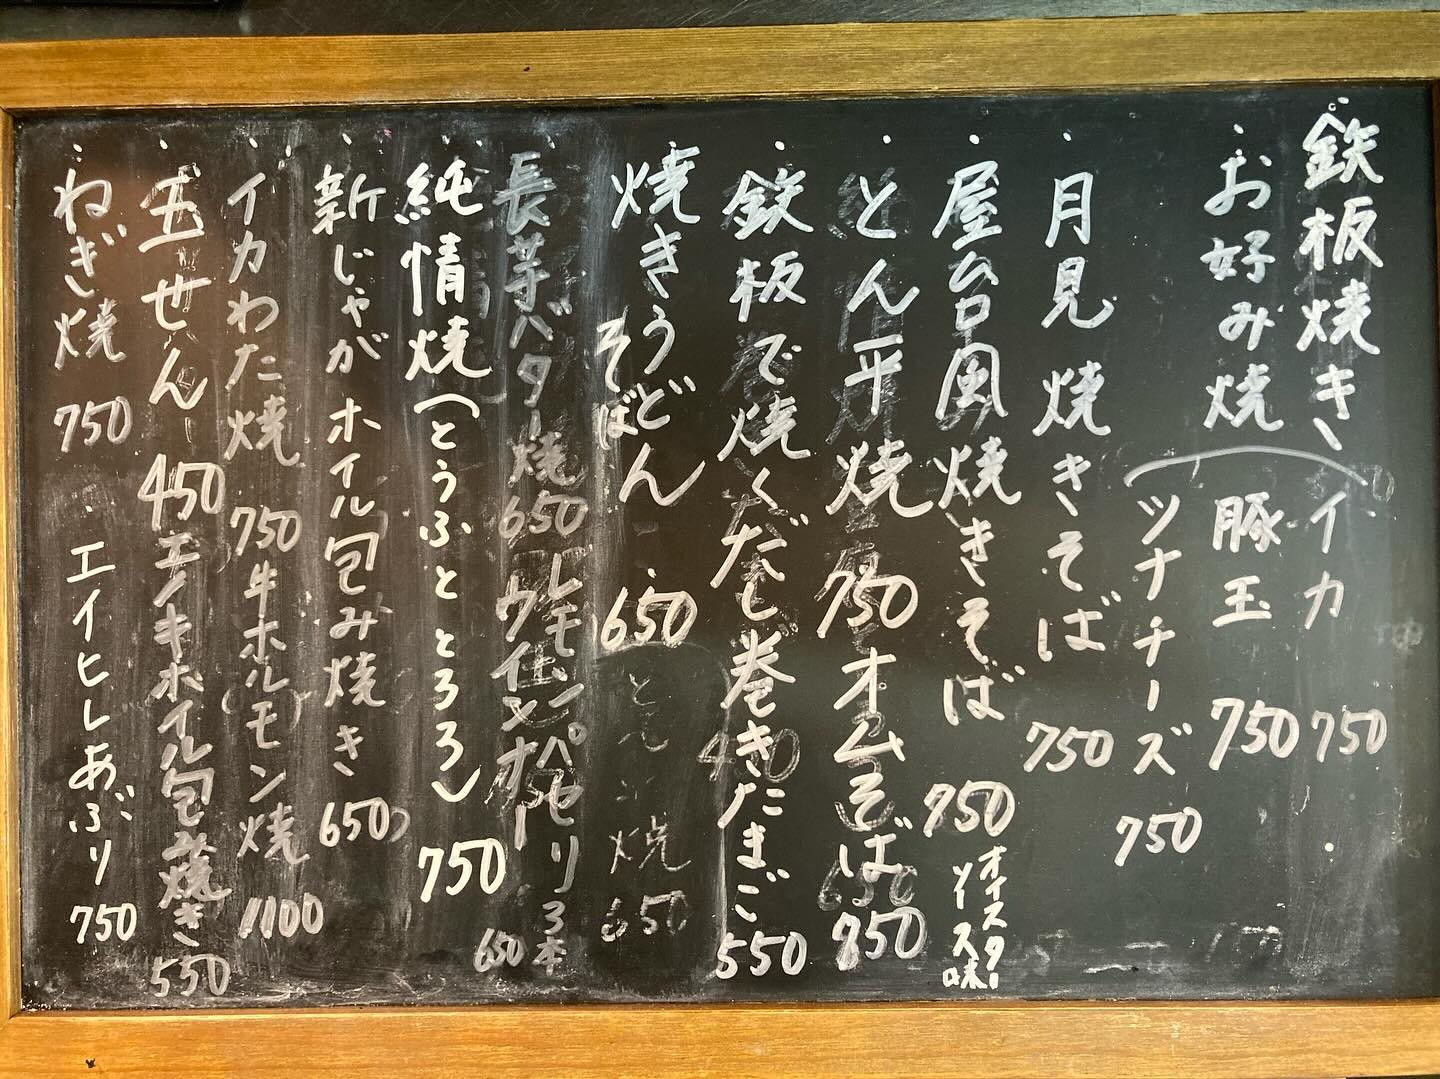 鉄板焼き イカ 750
お好み焼 豚玉 750
ツナチーズ 750
月見焼きそば 750
屋台風焼きそば 750 オイスターソース味
とん平焼 750 オムそば 850
鉄板で焼くだし巻きたまご 550
焼きうどん 650
そば
とん平焼 650
長芋バター焼 650 レモンパセリウインナー 3本 650
純情焼(とうふととろろ) 750
新じゃがホイル包み焼き 650
イカわた焼 750 牛ホルモン焼 1100
玉せん 450 エノキホイル包み焼き 550
ねぎ焼 750 エイヒレあぶり 750